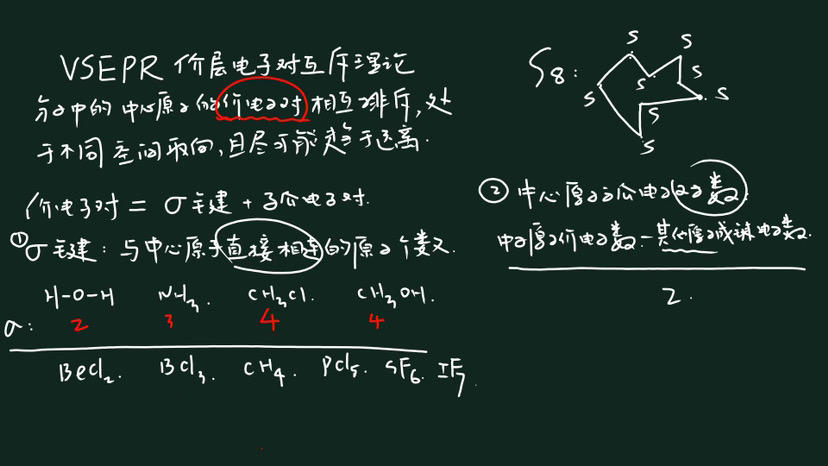 VSEPR 价层电子对互斥理论
分子中的中心原子的价电子对相互排斥,处
于不同空间取向,且尽可能趋于远离.
价电子对 = σ键 + 孤电子对.
①σ键: 与中心原子直接相连的原子个数.
H-O-H NH3. CH3Cl. CH3OH.
σ: 2 3 4 4
BeCl2. BCl3. CH4. PCl5. SF6. IF7.
S8:
S
S
S
S
S
S
S
S
②中心原子孤电子对数
中心原子价电子数-其他原子成键电子数.
2.